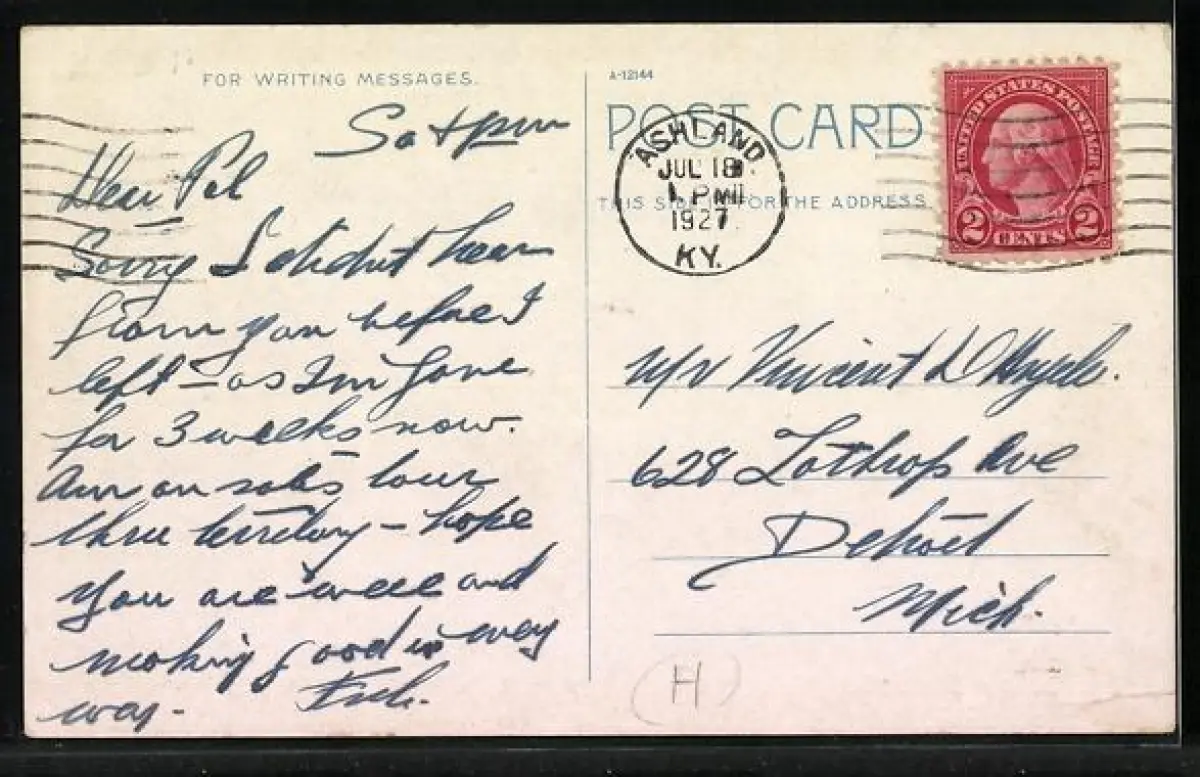 FOR WRITING MESSAGES.
Sat pm
Dear Pal
Sorry I didnt hear
from you before I
left – as Im gone
for 3 weeks now.
Am on sales tour
thru territory – hope
you are well and
making good in every
way –
A-12144
POST CARD
THIS SIDE IS FOR THE ADDRESS.
ASHLAND
JUL 18
1 PM
1927
KY.
UNITED STATES POSTAGE
2 CENTS 2
Mr Vincent D
628 Lothrop Ave
Detroit
Mich.
(H)